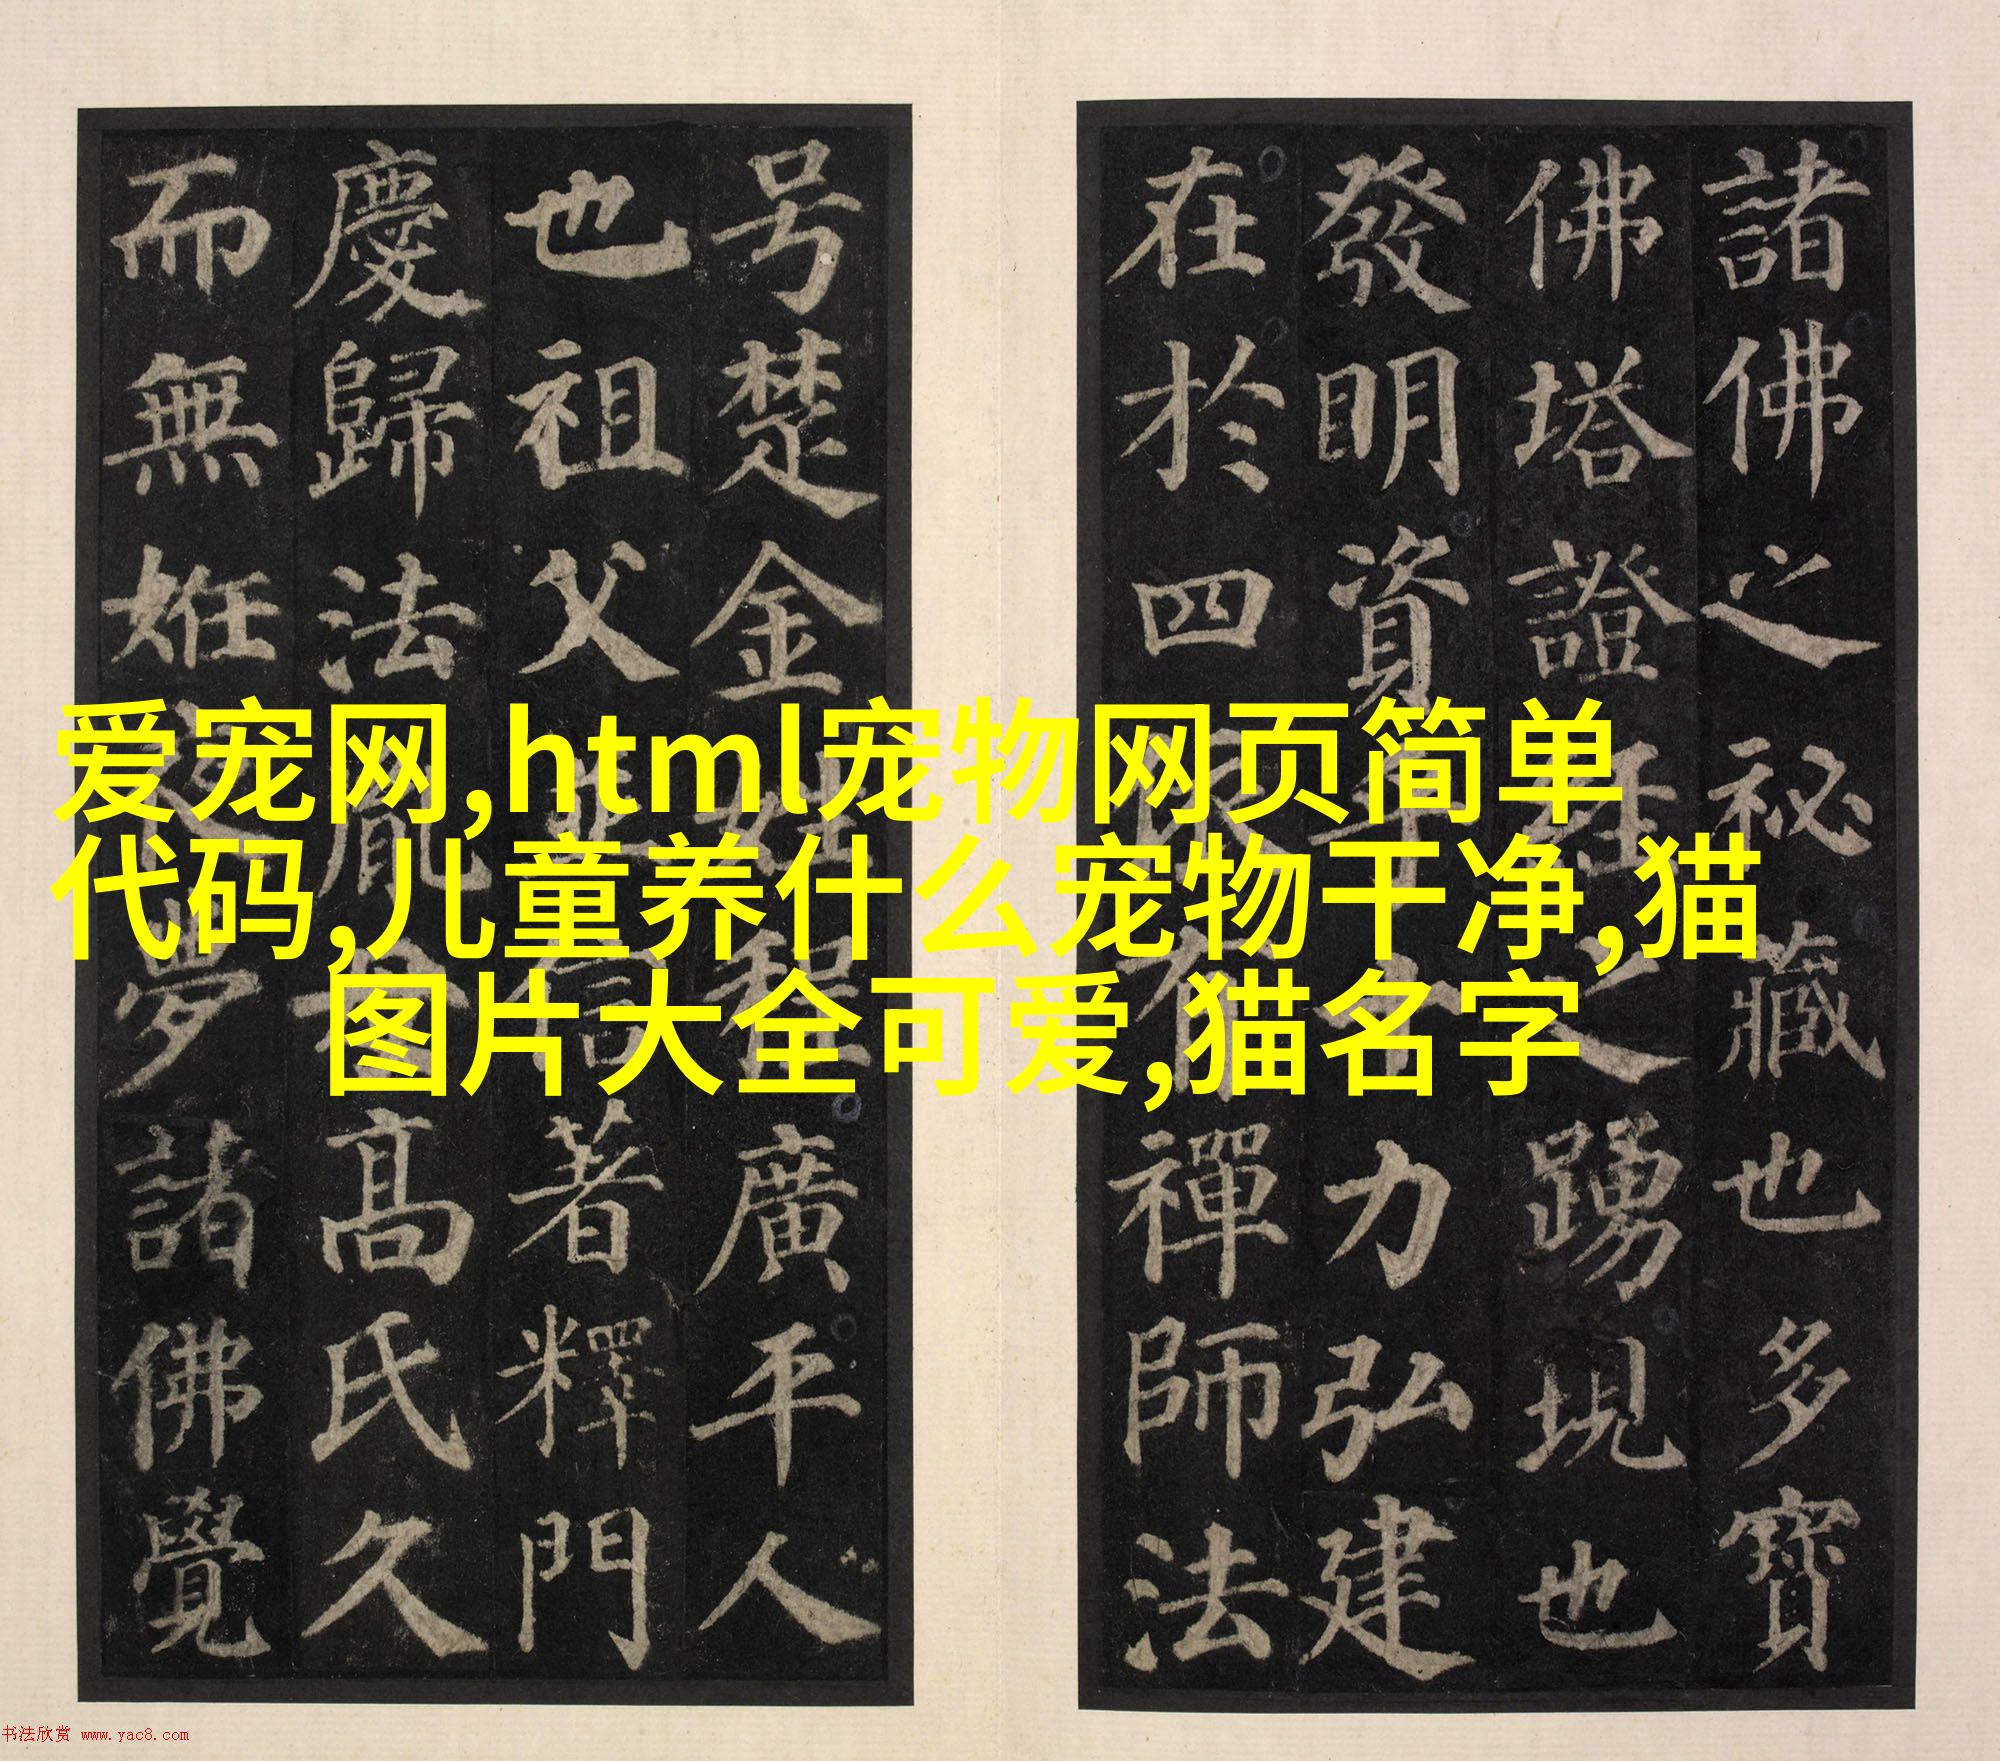 諸佛之祕藏也多寶
佛塔證經之踴現也
發明資乎十力弘建
在於四依有禪師法
号楚金姓程廣平人
也祖父並信著釋門
慶歸法胤母高氏久
而無姙夜夢諸佛覺
爱宠网,html宠物网页简单
代码,儿童养什么宠物干净,猫
图片大全可爱,猫名字
书法欣赏 www.yac8.com